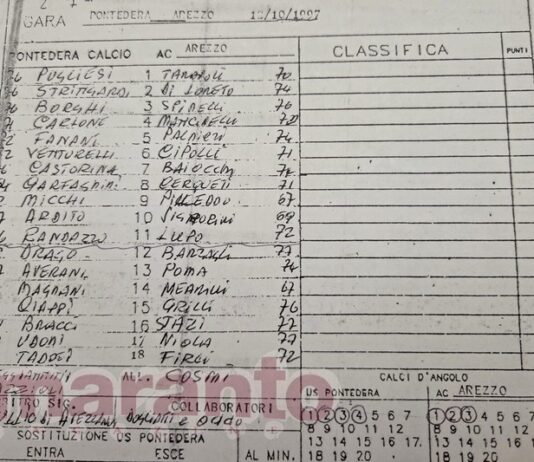 GARA PONTEDERA AREZZO 12/10/1997
PONTEDERA CALCIO AC AREZZO CLASSIFICA PUNTI
PUGLIESI 1 70
STRINGARDI 2 DI LORETO 74
BORGHI 3 SPINELLI 76
CARLONE 4 MANCINELLI
FANANI 5 PALMIERI 74
VENTURELLI 6 CIPOLLI 71
CASTORINA 7 BAIOCCHI
GARFAGNINI 8 CERQUETI 71
MICCHI 9 PILLEDDU 67
ARDITO 10 69
RANDAZZO 11 LUPO 72
DRAGO 12 BARZAGLI 77
AVERANI 13 POMA 74
MAGNANI 14 67
GIAPPI 15 GRILLI 76
BRACCI 16 STAZI 77
UDONI 17 NIOLA 77
TADDEI 18 FIRLI 72
ALL. COSMI
amaranto
CALCI D'ANGOLO
COLLABORATORI US PONTEDERA AC AREZZO
1 2 3 4 5 6 7 1 2 3 4 5 6 7
8 9 10 11 12 8 9 10 11 12
SOSTITUZIONE US PONTEDERA 13 14 15 16 17. 13 14 15 16
ENTRA ESCE AL MIN. 18 19 20 18 19 20